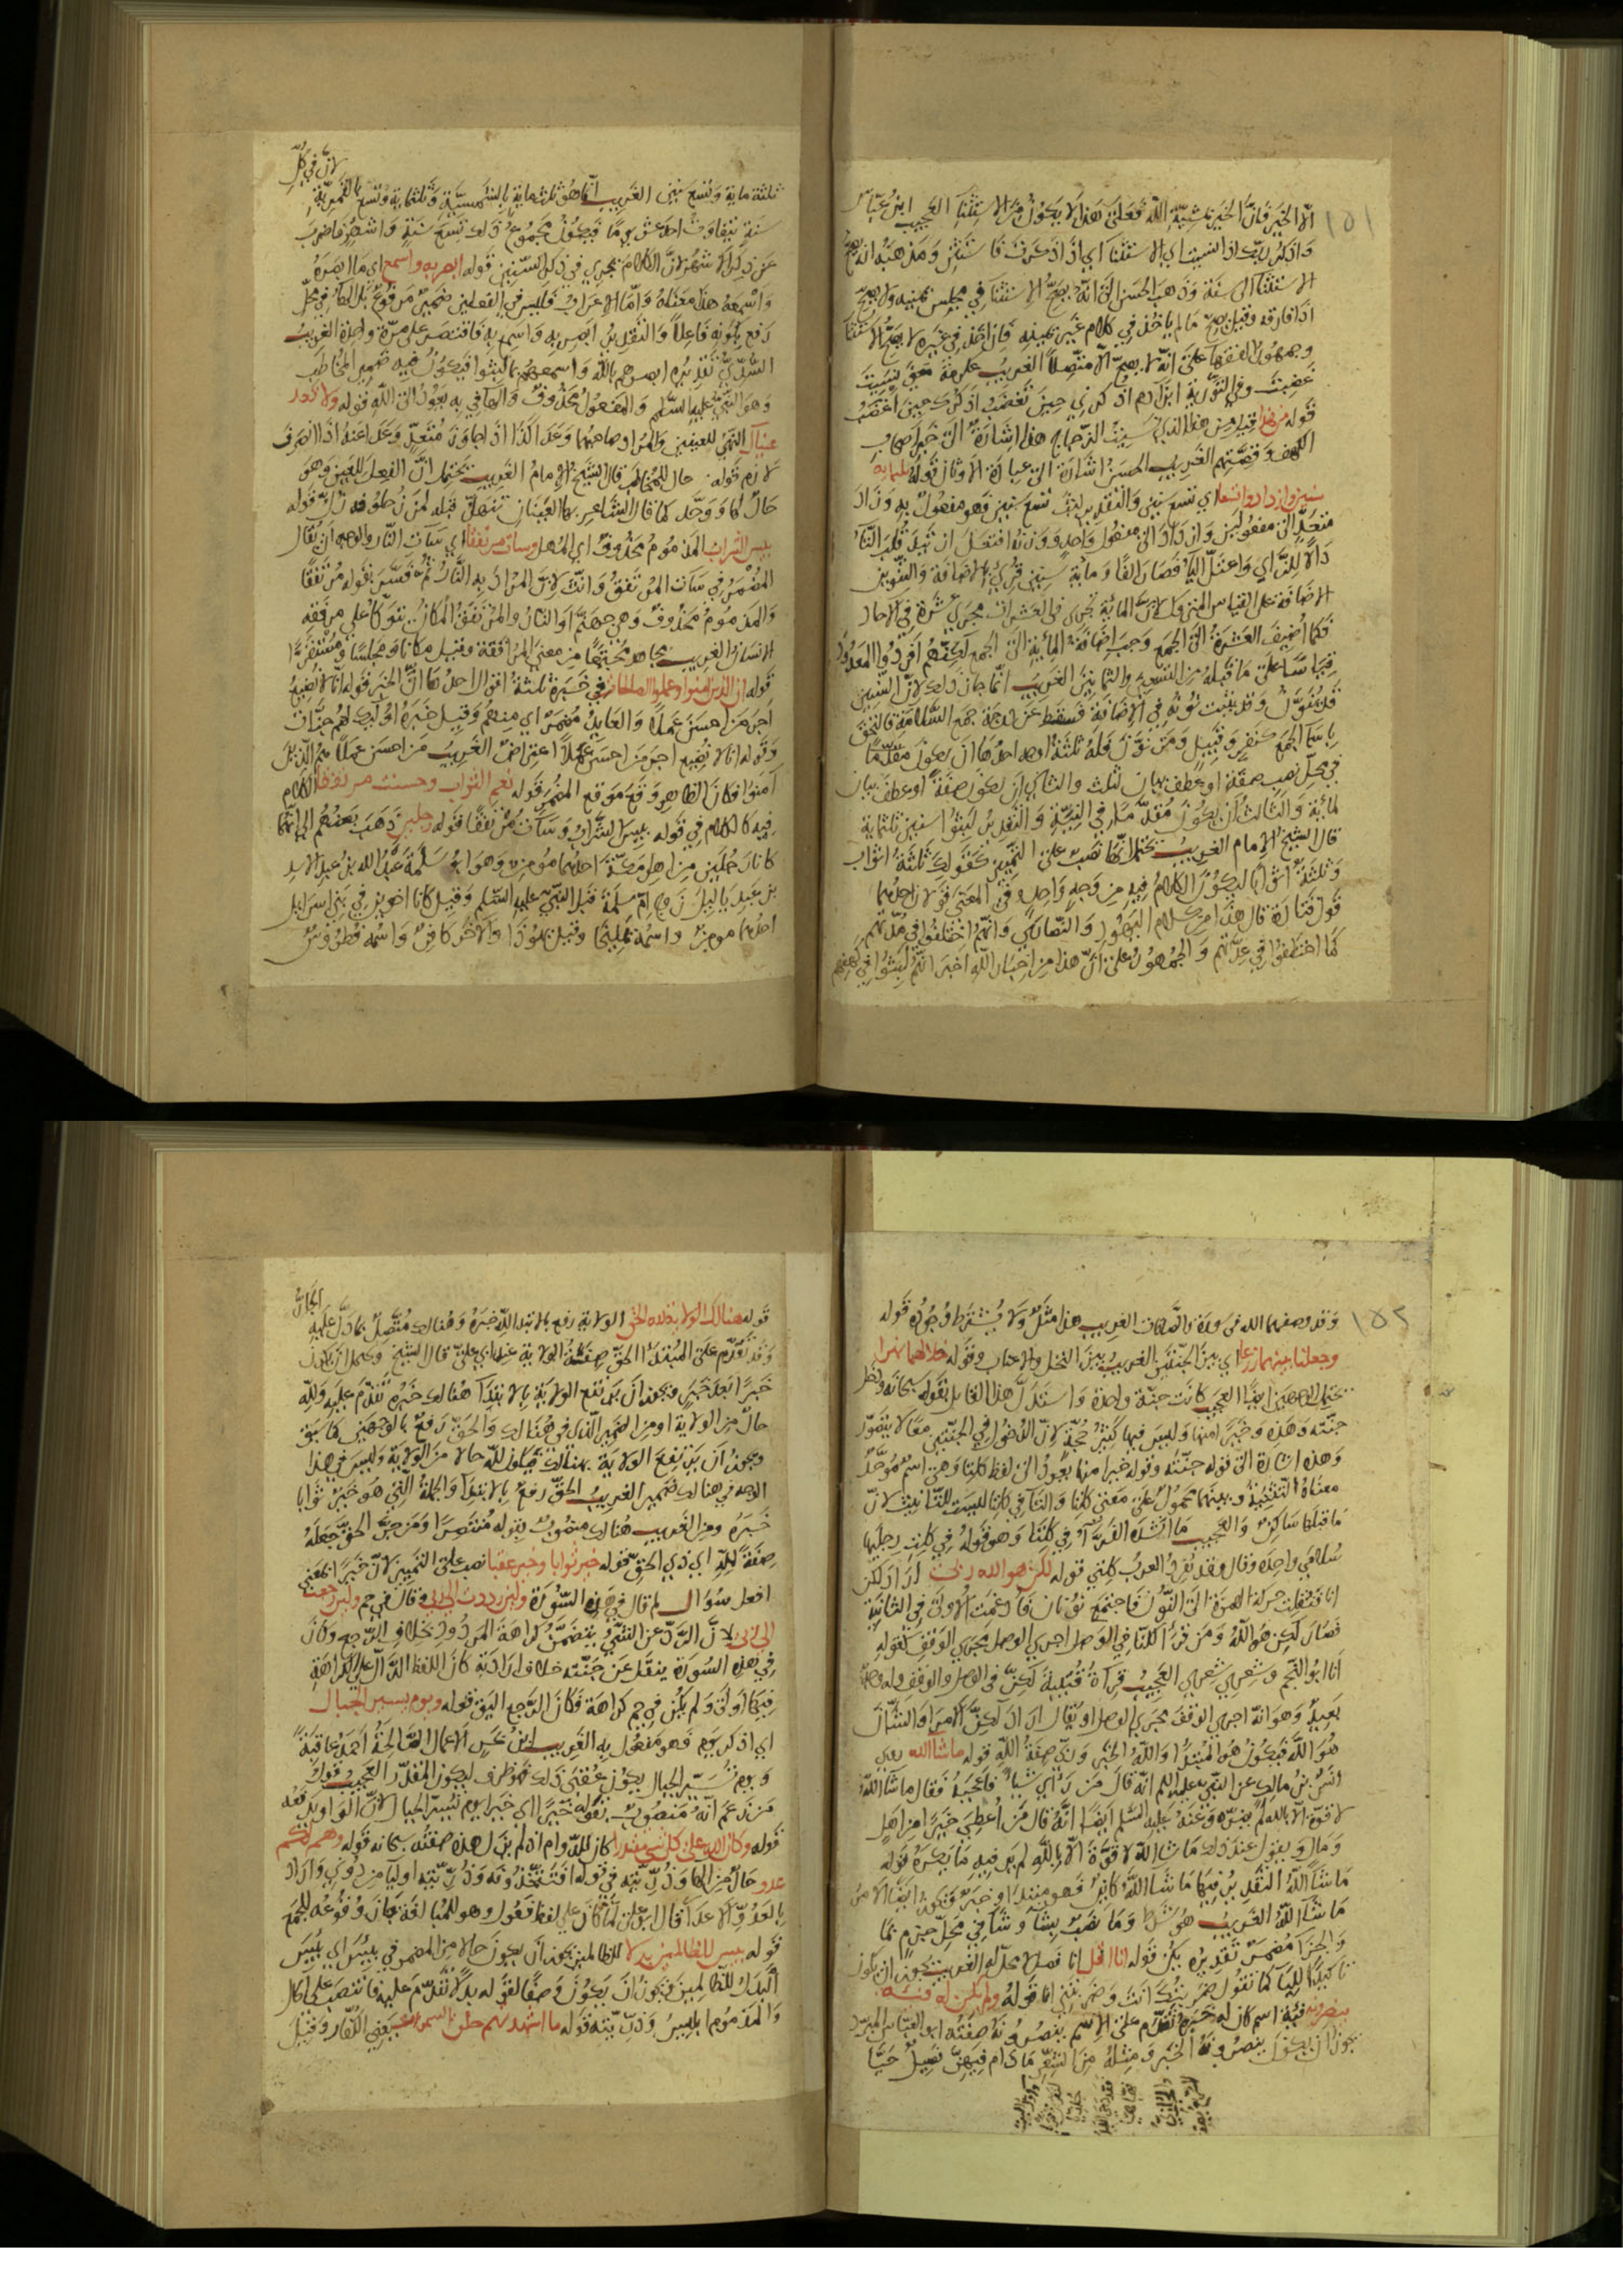 ١٥١
الا الخير فانّ الخير بمشيّة الله فعلى هذا لا يكون من الاستثنا العجيب ابن عبّاس
واذكر ربك اذا نسيت اي الاستثنا اي اذا ذكرت فاستثن ومذهبه انه يصح
الاستثنا الى سنة وذهب الحسن الى انّه يصحّ الاستثنا في مجلس يمينه ولا يصح
اذا فارقه وقيل يصح ما لم ياخذ في كلام غير يمينه فان اخذ في غيره لا يصحّ الاستثنا
وجمهور الفقها على انّه لا يصح الّا متّصلًا الغريب عكرمة معنى نسيت
غضبت وفي التورية ابن ادم اذكرني حين تغضب اذكرك حين اغضب
قوله من هذا قيل من هذا الذي نسيت الزجاج هذا اشارة الى خبر اصحاب
الكهف وقصّتهم الغريب الحسن اشارة الى عبادة الاوثان قوله ثلثماية
سنين وازدادوا تسعا اي تسع سنين والتقدير لبث تسع سنين فهو مفعول به وزاد
متعدّ الى مفعولين وازداد الى مفعول واحد ووزنه افتعل ازتيد قلب التّاء
دالًا للزّاي واعتلّ الياء فصار الفًا وماية سنين قرئ بالاضافة والتنوين
الاضافة على القياس المتروك لانّ الماية تجري في العشرات مجرى عشرة في الاحاد
فكما اضيف العشرة الى الجمع وجب اضافة الماية الى الجمع لكنّهم افردوا المعدود
قياسًا على ما قبله من التسعين والثمانين الغريب انّما جاز ذلك لانّ السنين
قد ينوّن وقد يثبت نونه في الاضافة فسقط عن درجة جمع السّلامة فالتحق
باسما الجمع كنفر وقبيل ومن نوّن فله ثلثة اوجه احدها ان يكون مقدّما
في محل نصب صفة او عطف بيان لثلث والثاني ان يكون صفة او عطف بيان
لماية والثالث ان يكون مقدّما في النيّة والتقدير لبثوا سنين ثلثماية
قال الشيخ الامام الغريب يحتمل انّها نصب على التمييز كقولك ثلثة اثواب
وثلثة اثوابًا ليكون الكلام فيه من وجه واحد وفي المعنى قولان احدهما
قول قتادة قال هذا من كلام اليهود والنّصارى وانّهم اختلفوا في مدّتهم
كما اختلفوا في عدّتهم والجمهور على انّ هذا من اخبار الله اخبر انّهم لبثوا في كهفهم
ثلثة ماية وتسع سنين الغريب انّما هو ثلثماية بالشمسيّة وثلثماية وتسع بالقمريّة
لانّ في كلّ
سنة تتفاوت احد عشر يومًا فيكون مجموع ذلك تسع سنة واشهر فاضرب
عن ذكر الاشهر لانّ الكلام يجري في ذكر السّنين قوله ابصر به واسمع اي ما ابصره
واسمعه هذا معناه وامّا الاعراب فليس في الفعلين ضمير مرفوع بل الجار في محلّ
رفع بكونه فاعلًا والتقدير ابصر به واسمع به فاقتصر على مرّة واحدة الغريب
السّدّيّ تقديره ابصرهم بالله واسمعهم بما لبثوا فيكون فيه ضمير المخاطب
وهو النّبيّ عليه السّلم والمفعول محذوف والها في به يعود الى الله قوله ولا تعد
عيناك النهي للعينين والمراد صاحبهما وعدا كذا اذا جاوز متعدّ وعدا عنه اذا انصرف
لازم قوله حال للمخاطب قال الشيخ الامام الغريب يحتمل انّ الفعل للعين وهو
حال لها ووحّد كما قال الشاعر بها العينان تنهلّ قوله
بئس الشراب المذموم محذوف اي المهل وساءت مرتفقا اي ساءت النّار والوجه ان يقال
المضمر في ساءت المرتفق وانّث لانّ المراد به النّار ثم فسّر بقوله مرتفقا
والمذموم محذوف وهي جهنّم او النار والمرتفق المكان يتوكّأ على مرفقه
الانسان الغريب مجاهد مجتمعًا من معنى المرافقة وقيل مكانًا ومجلسًا ومستقرًّا
قوله انّ الذين امنوا وعملوا الصالحات في خبره ثلثة اقوال احدها انّ الخبر قوله انّا لا نضيع
اجر من احسن عملًا والعايد مضمر اي منهم وقيل خبره اولئك لهم جنّات
وقوله انا لا نضيع اجر من احسن عملًا اعتراض الغريب من احسن عملًا هم الذين
امنوا فكان الظاهر وقع موقع المضمر قوله نعم الثواب وحسنت مرتفقا الكلام
فيه كالكلام في قوله بئس الشراب وساءت مرتفقا قوله رجلين ذهب بعضهم الى انّهما
كانا رجلين من اهل مكّة احدهما مومن وهو ابو سلمة عبد الله بن عبد الاسد
بن عبد ياليل زوج امّ سلمة قبل النبيّ عليه السّلم وقيل كانا اخوين في بني اسرايل
احدهما مومن واسمه تمليخا وقيل يهوذا والاخر كافر واسمه قطروس
١٥٢
وقد وصفهما الله في سورة والصّافات الغريب هذا مثل ولا يشترط وجوده قوله
وجعلنا بينهما زرعا اي بين الجنّتين الغريب بين النخل والاعناب وقوله خلالهما نهرا
يحتمل الوجهين ايضًا العجيب كانت جنّة واحدة واستدلّ هذا القايل بقوله سبحانه ودخل
جنّته وهذه وخيرًا منها وليس فيها كثير حجّة لانّ الدّخول في الجنّتين معًا لا يتصوّر
وهذه اشارة الى قوله جنّته وقوله خيرا منها يعود الى لفظ كلتا وهي اسم موحّد
معناه التثنية محمول على معنى كلتا والتا في كلتا ليست للتّانيث لانّ
ما قبلها ساكن والعجيب ما انشده الفرّاء في كلتا وهو قوله في كلت رجليها
سلامى واحدة وقال وقد تفرد العرب كلتي قوله لكن هو الله ربّي اراد لكن
انا فنقلت حركة الهمزة الى النّون فاجتمع نونان فادغمت الاولى في الثانية
فصار لكنّ هو الله ومن قرأ لكنّا في الوصل اجري الوصل مجرى الوقف لقوله
انا ابو النّجم وشعري شعري العجيب قراءة قتيبة لكنّ في الوصل والوقف وله وجه
بعيد وهو انّه اجرى الوقف مجرى الوصل او يقال اراد لكنّ الامر او الشّأن
هو الله فيكون هو المبتدأ والله الخبر وربّي صفة الله قوله ما شاء الله روى
انس بن مالك عن النّبي عليه السلم انّه قال من رأى شيئا فاعجبه فقال ما شاء الله
لا قوّة الّا بالله لم يضرّه وعنه عليه السّلم ايضًا انّه قال من اعطي خيرًا من اهل
ومال ويقول عند ذلك ما شاء الله لا قوّة الّا بالله لم ير فيه ما يكره قوله
ما شاء الله التقدير فيها ما شاء الله كاين فهو مبتدا وخبر ويجوز ايضًا الامر
ما شاء الله الغريب هو شرط وما نصب بشاء وشاء في محلّ جزم بما
والجزا مضمر تقديره يكن قوله انا اقل انا فصل لا محلّ له الغريب يجوز ان يكون
تاكيدًا للياء كما تقول ضربتك انت وضربتني انا قوله ولم تكن له فئة
ينصرونه فئة اسم كان له خبره تقدّم على الاسم ينصرونه صفته ابو العبّاس المبرّد
يجوز ان يكون ينصرونه الخبر ومثله من الشعر ما دام فيهنّ فصيل حيّا
قوله هنالك الولاية لله الحق الولاية رفع بالابتدا لله خبره وهنالك متّصل بما دلّ عليه
الجارّ
وقد تقدّم على المبتدأ الحقّ صفة الولاية عند ابي عليّ قال الشيخ ويحتمل ان يكون
خبرًا بعد خبر ويجوز ان يرتفع الولاية بالابتدا هنالك خبره تقدّم عليه ولله
حال من الولاية او من الضمير الّذي في هنالك والحقّ رفع بالوجهين كما سبق
ويجوز ان يرتفع الولاية بهنالك فيكون لله حالا من الولاية وليس في هذا
الوجه في هنالك ضمير الغريب الحقّ رفع بالابتداء والجملة الّتي هو خير ثوابا
خبره ومن الغريب هنالك منصوب بقوله منتصرًا ومن جرّ الحقّ جعله
صفة للّه اي ذي الحقّ قوله خير ثوابا وخير عقبا نصب على التمييز لانّ خيرًا بمعنى
افعل سؤال لم قال في هذه السّورة ولئن رددت الى ربي وقال في حم ولئن رجعت
الى ربي لانّ الرّدّ عن الشّيء يتضمّن كراهة المردود بخلاف الرّجع وكان
في هذه السورة ينقل عن جنّته خلاف ارادته كان اللفظ الدّالّ على الكراهة
فيها اولى ولم يكن في حم كراهة فكان الرّجع اليق قوله ويوم نسير الجبال
اي اذكر يوم فهو مفعول به الغريب ابن عيسى الاعمال الصّالحة احمد عاقبة
ويوم نسيّر الجبال يكون عقبى ذلك فهو ظرف ليكون المقدّر العجيب قول
من زعم انّه منصوب بقوله خيرًا اي خيرا يوم نسيّر الجبال لانّ الواو يدفعه
قوله وكان الله على كل شيء مقتدرا كان للدّوام اذ لم يزل هذه صفته سبحانه قوله وهم لكم
عدو حال من الها وذرّيّته في قوله افتتّخذونه وذرّيّته اوليا من دوني واراد
بالعدوّ الاعداء قال ابو علي لمّا كان على لفظ فعول وهو للمبالغة جاز وقوعه للجمع
قوله بئس للظالمين بدلا للظالمين يجوز ان يكون حالا من المضمر في بئس اي بئس
البدل للظالمين ويجوز ان يكون وصفًا لقوله بدلًا تقدّم عليه فانتصب على الحال
والمذموم ابليس وذرّيّته قوله ما اشهدتهم خلق السموات يعني الكفّار وقيل